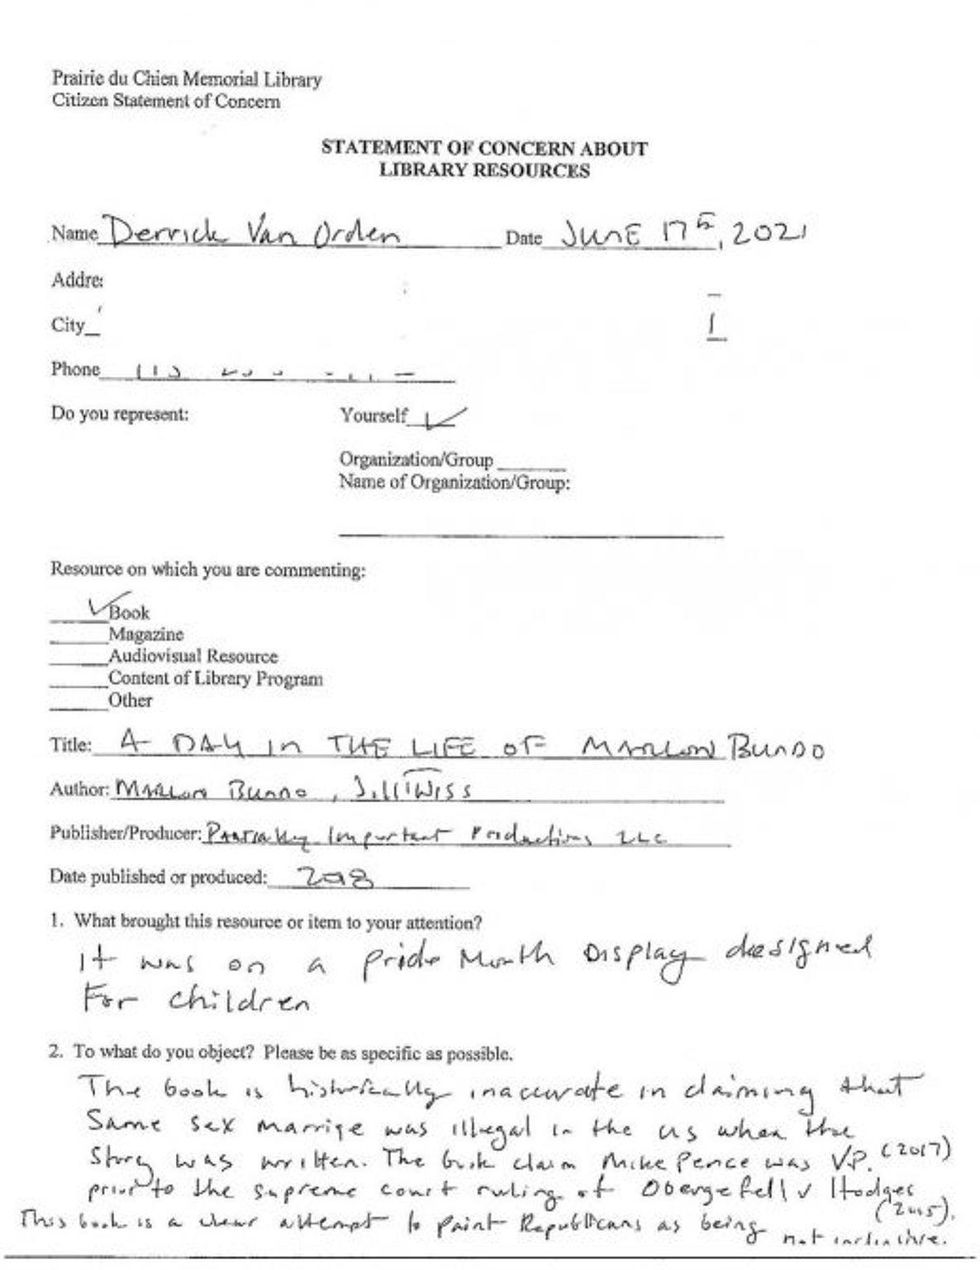 Prairie du Chien Memorial Library
Citizen Statement of Concern
STATEMENT OF CONCERN ABOUT
LIBRARY RESOURCES
Name Derrick Van Orden Date JUNE 17th, 2021
Addre
City
Phone
Do you represent: Yourself ✓
Organization/Group
Name of Organization/Group:
Resource on which you are commenting:
✓ Book
Magazine
Audiovisual Resource
Content of Library Program
Other
Title: A DAY IN THE LIFE OF MARLON BUNDO
Author: MARLON BUNDO, Jill Twiss
Publisher/Producer: Partially Important Productions LLC
Date published or produced: 2018
1. What brought this resource or item to your attention?
It was on a Pride Month Display designed
For children
2. To what do you object? Please be as specific as possible.
The book is historically inaccurate in claiming that
Same sex marrige was illegal in the US when the
Story was written. The book claim Mike Pence was V.P. (2017)
prior to the supreme court ruling of Obergefell v Hodges
(2015).
This book is a clear attempt to paint Republicans as being
not inclusive.